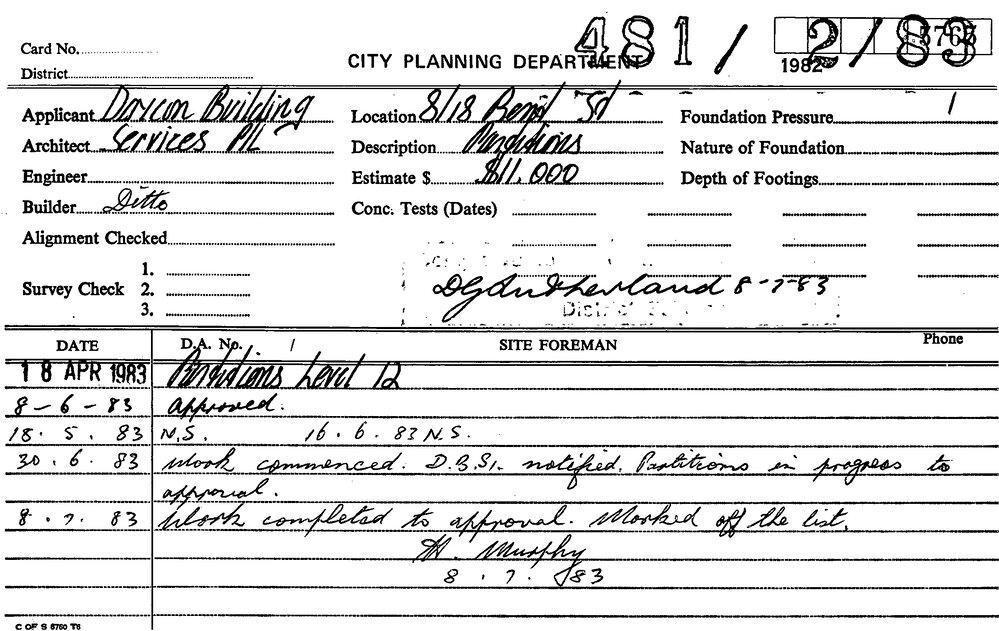 481 / 2/83
Card No.
CITY PLANNING DEPARTMENT
1982
District
Applicant Doxcon Building
Location 8/18 Bent St
Foundation Pressure
Architect Services P/L
Description Partitions
Nature of Foundation
Engineer
Estimate $ $11.000
Depth of Footings
Builder Ditto
Conc. Tests (Dates)
Alignment Checked
Survey Check
1.
2.
3.
DG Sutherland 8-7-83
DATE
D.A. No. /
SITE FOREMAN
Phone
18 APR 1983 Partitions Level 12
8-6-83 approved.
18.5.83 N.S. 16.6.83 N.S.
30.6.83 Work commenced. D.B.S. notified. Partitions in progress to
approval.
8.7.83 Work completed to approval. Marked off the list.
H. Murphy
8.7.83
C OF S 8760 T6